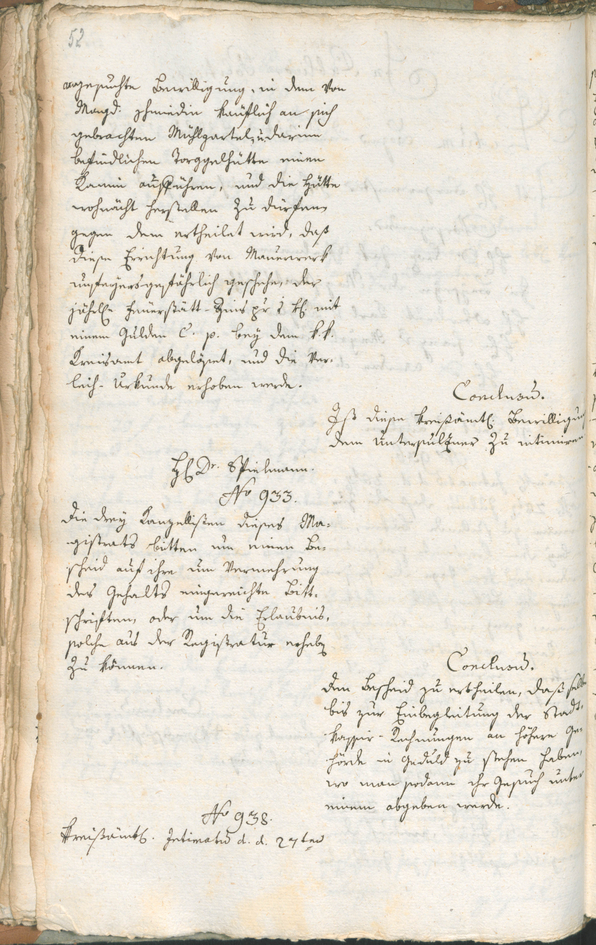 52
angesuchte Bewilligung, in dem von
Magd: Schmidin käuflich an sich
gebrachten Mühlgartel, u: darinn
befindlichen Torggelhütte einen
Kamin aufführen, und die Hütte
wohnächt herstellen zu dürfen,
gegen dem ertheilet wird, daß
diese Errichtung von Mauerwerk
unfeyersgefährlich geschehe, der
jährl: Feuerstätt-Zins pr 1 xr mit
einem Gulden C. p. bey dem k: k:
Kreisamt abgelöset, und die Ver-
leih-Urkunde erhoben werde.
Conclusum.
Ist diese kreisämtl: Bewilligung
dem Unterpulzner zu intimiren
H: Dr. Spielmann.
No 933.
Die drey Kanzellisten dieses Ma-
gistrats bitten um einen Be-
scheid auf ihre um Vermehrung
des Gehalts eingereichte Bitt-
schriften, oder um die Erlaubnis,
solche aus der Registratur erheben
zu können.
Conclusum.
Den Bescheid zu ertheilen, daß selbe
bis zur Einbegleitung der Stadt-
kassier-Rechnungen an höhere Be-
hörde in Geduld zu stehen haben,
wo man sodann ihr Gesuch unter
einem abgeben werde.
No 938.
Kreisämtl. Intimatum d. d. 27ten